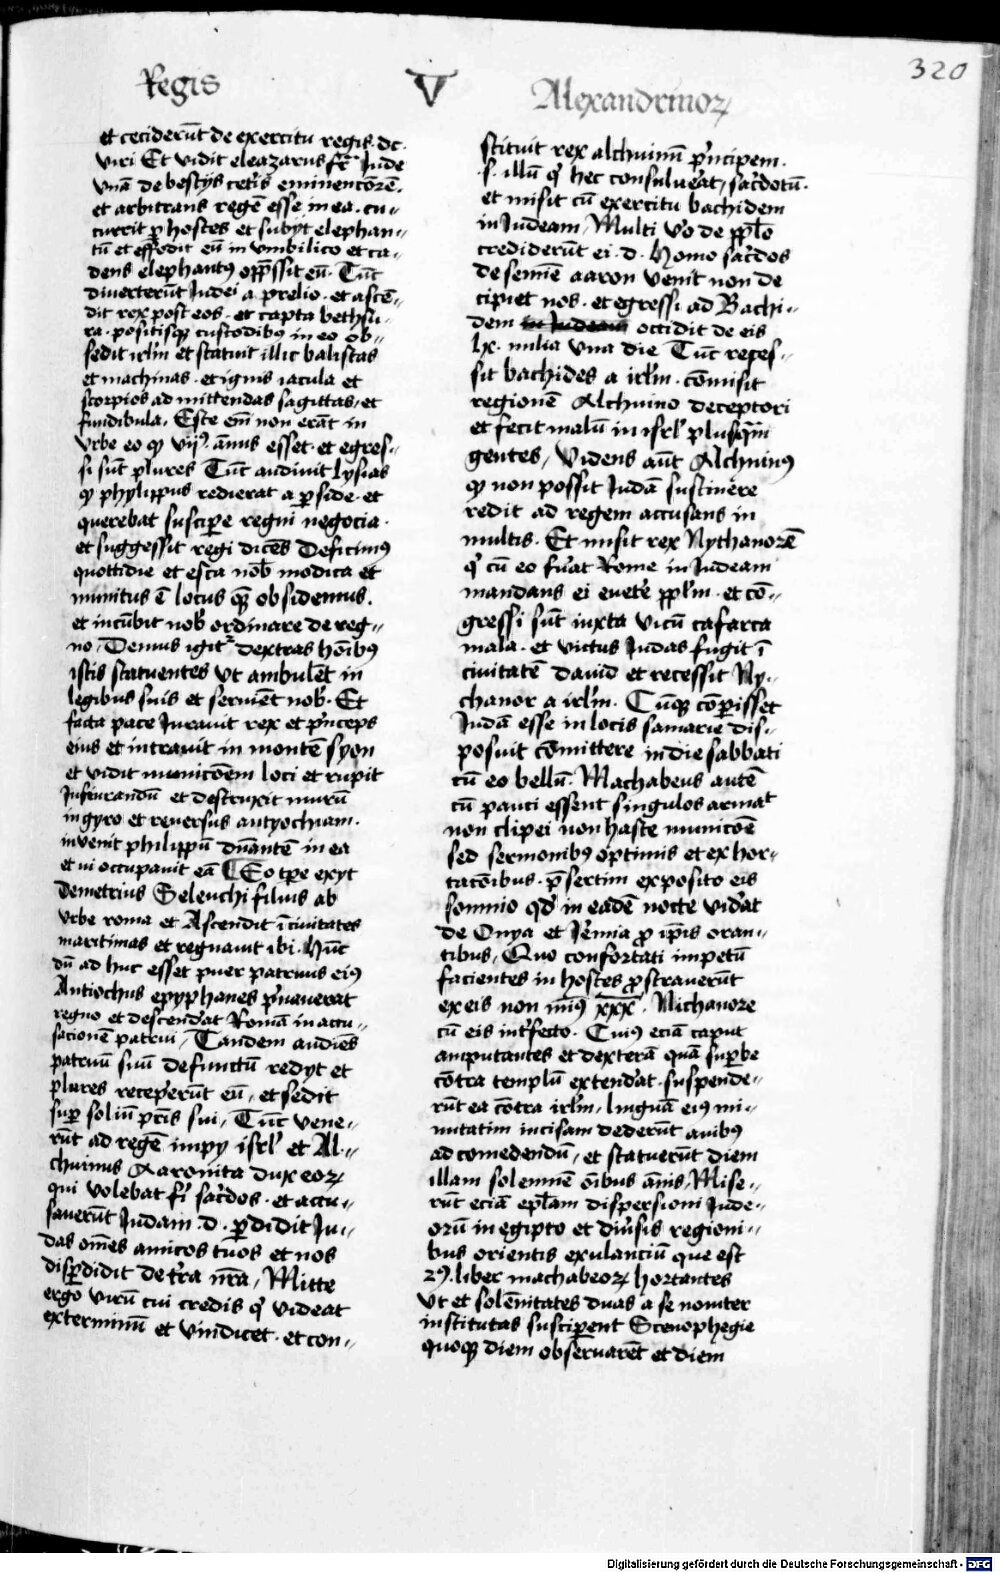 Regis V Alexandrinoꝝ
320
et ceciderūt de exercitu regis dc.
viri Et vidit eleazarus fr̄ Jude
vnā de bestijs ceteris eminenciorē.
et arbitrans regē esse in ea. cu-
currit ꝑ hostes et subijt elephan-
tū et effodit eū in vmbilico et ca-
dens elephantꝰ opp̄ssit eū. Tūc
diuerterūt Judei a prelio. et ascē-
dit rex post eos. et capta bethsu-
ra. positisqꝫ custodibꝰ in eo ob-
sedit irl̄m et statuit illic balistas
et machinas. et ignis iacula et
scorpios ad mittendas sagittas, et
fundibula. Esce em̄ non erāt in
vrbe eo ꝙ vijꝰ. ānus esset. et egres-
si sūt plures Tūc audiuit lysias
ꝙ phylippus redierat a ꝑside. et
querebat suscipe regni negocia.
et suggessit regi dicēs Deficimꝰ
quottidie et esca nob̄ modica et
munitus ē locus quē obsidemus.
et incūbit nob̄ ordinare de reg-
no, Demus igitr̄ dextras hōibꝰ
istis statuentes vt ambulēt in
legibus suis et seruiēt nob̄. Et
facta pace Jurauit rex et p̄nceps
eius et intrauit in montē syon
et vidit municōem loci et rupit
Jusiurandū et destruxit murū
in gyro et reuersus antyochiam.
inuenit philippū dn̄antē in ea
et ui occupauit eā Eo tp̄e exyt
Demetrius Seleuchi filius ab
vrbe roma et Ascendit ī ciuitates
maritimas et regnauit ibi. Hūc
dū ad huc esset puer patruus eiꝰ
Antiochus epyphanes p̄uauerat
regno et descend̄at Romā in accu-
sacionē patrui, Tandem audiēs
patruū suū defunctū redyt et
plures receperūt eū, et sedit
suꝑ soliū pr̄is sui, Tūc vene-
rūt ad regē impy isrl̄ et Al-
chimus Aaronita dux eoꝝ
qui volebat fi̇ sac̄dos. et accu-
sauerūt Judam .d. ꝑdidit Ju-
das om̄es amicos tuos et nos
disꝑdidit de tr̄a nr̄a, Mitte
ergo virū cui credis ꝙ videat
exterminiū et vindicet. et con-
stituit rex alchimū p̄ncipem.
.s. illū qͥ hec consuluerat, sac̄dotū.
et misit cū exercitu bachidem
in Judeam, Multi v̄o de ppl̄o
crediderūt ei .d. Homo sac̄dos
de semie aaron venit non de
cipiet nos. et egressi ad Bachi-
dem in Judeam occidit de eis
lx. milia vna die Tūc reces-
sit bachides a irl̄m. cōmisit
regionē Alchimo deceptori
et fecit malū in isrl̄ plusqͣm
gentes, Videns aūt Alchimꝰ
ꝙ non possit Judā sustinere
redit ad regem accusans in
multis. Et misit rex Nychanorē
qͥ cū eo fu̇at Rome in Judeam
mandans ei eūtere ppl̄m. et cō-
gressi sūt iuxta vicū cafarca
mala. et victus Judas fugit ī
ciuitatē dauid et recessit Ny-
chanor a irl̄m. Cūqꝫ cōperisset
Judā esse in locis samarie dis-
posuit cōmittere in die sabbati
cū eo bellū. Machabeus autē
cū pauci essent singulos armat
non clipei non haste municōe
sed sermonibꝰ optimis et exhor-
tacōibus. p̄sertim exposito eis
somnio qd̄ in eadē nocte vid̄at
de Onya et Je̅mia ꝓ ip̄is oran-
tibus, Quo confortati impetū
facientes in hostes ꝓstrauerūt
ex eis non minꝰ xxx. Nichanore
cū eis int̄fecto. Cuiꝰ eciā caput
amputantes et dexterā quā suꝑbe
cōtra templū extend̄at. suspende-
rūt ea cōtra irl̄m, linguā eiꝰ mi-
nutatim incisam dederūt auibꝰ
ad comedendū, et statuerūt diem
illam solennē oībus ānis, Mise-
rūt eciā epl̄am dispersioni Jude-
orū in egipto et diu̇sis regioni-
bus orientis exulanciū que est
2ꝰ. liber machabeoꝝ hortantes
vt et solēnitates duas a se nouiter
institutas susciꝑent Scenophegie
quoqꝫ diem obseruarēt et diem
Digitalisierung gefördert durch die Deutsche Forschungsgemeinschaft - DFG